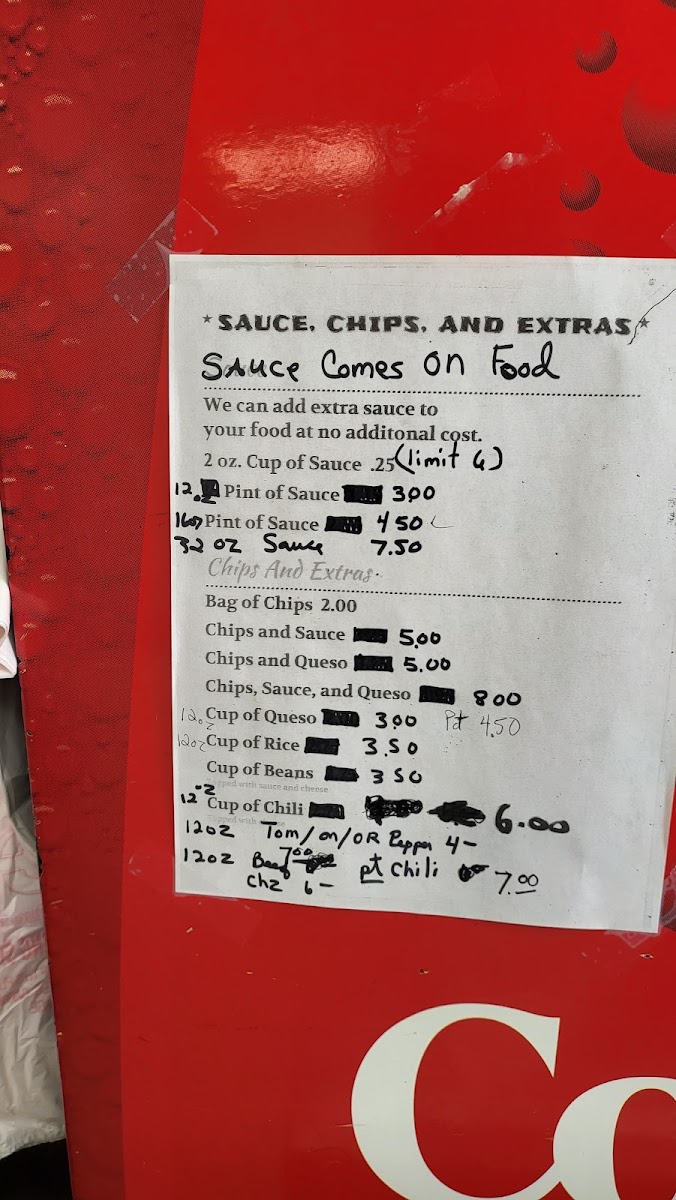 *SAUCE, CHIPS, AND EXTRAS*
SAUCE Comes on Food
We can add extra sauce to
your food at no additonal cost.
2 oz. Cup of Sauce .25 (limit 6)
12oz Pint of Sauce 300
16oz Pint of Sauce 450
32 oz Sauce 7.50
Chips And Extras
Bag of Chips 2.00
Chips and Sauce 5.00
Chips and Queso 5.00
Chips, Sauce, and Queso 800
12oz Cup of Queso 300 Pt 4.50
12oz Cup of Rice 3.50
Cup of Beans 350
Topped with sauce and cheese
12oz Cup of Chili 6.00
12oz Tom/on/OR Pepper 4-
12oz Beef 7.00
Chz 6- pt Chili 7.00
Co